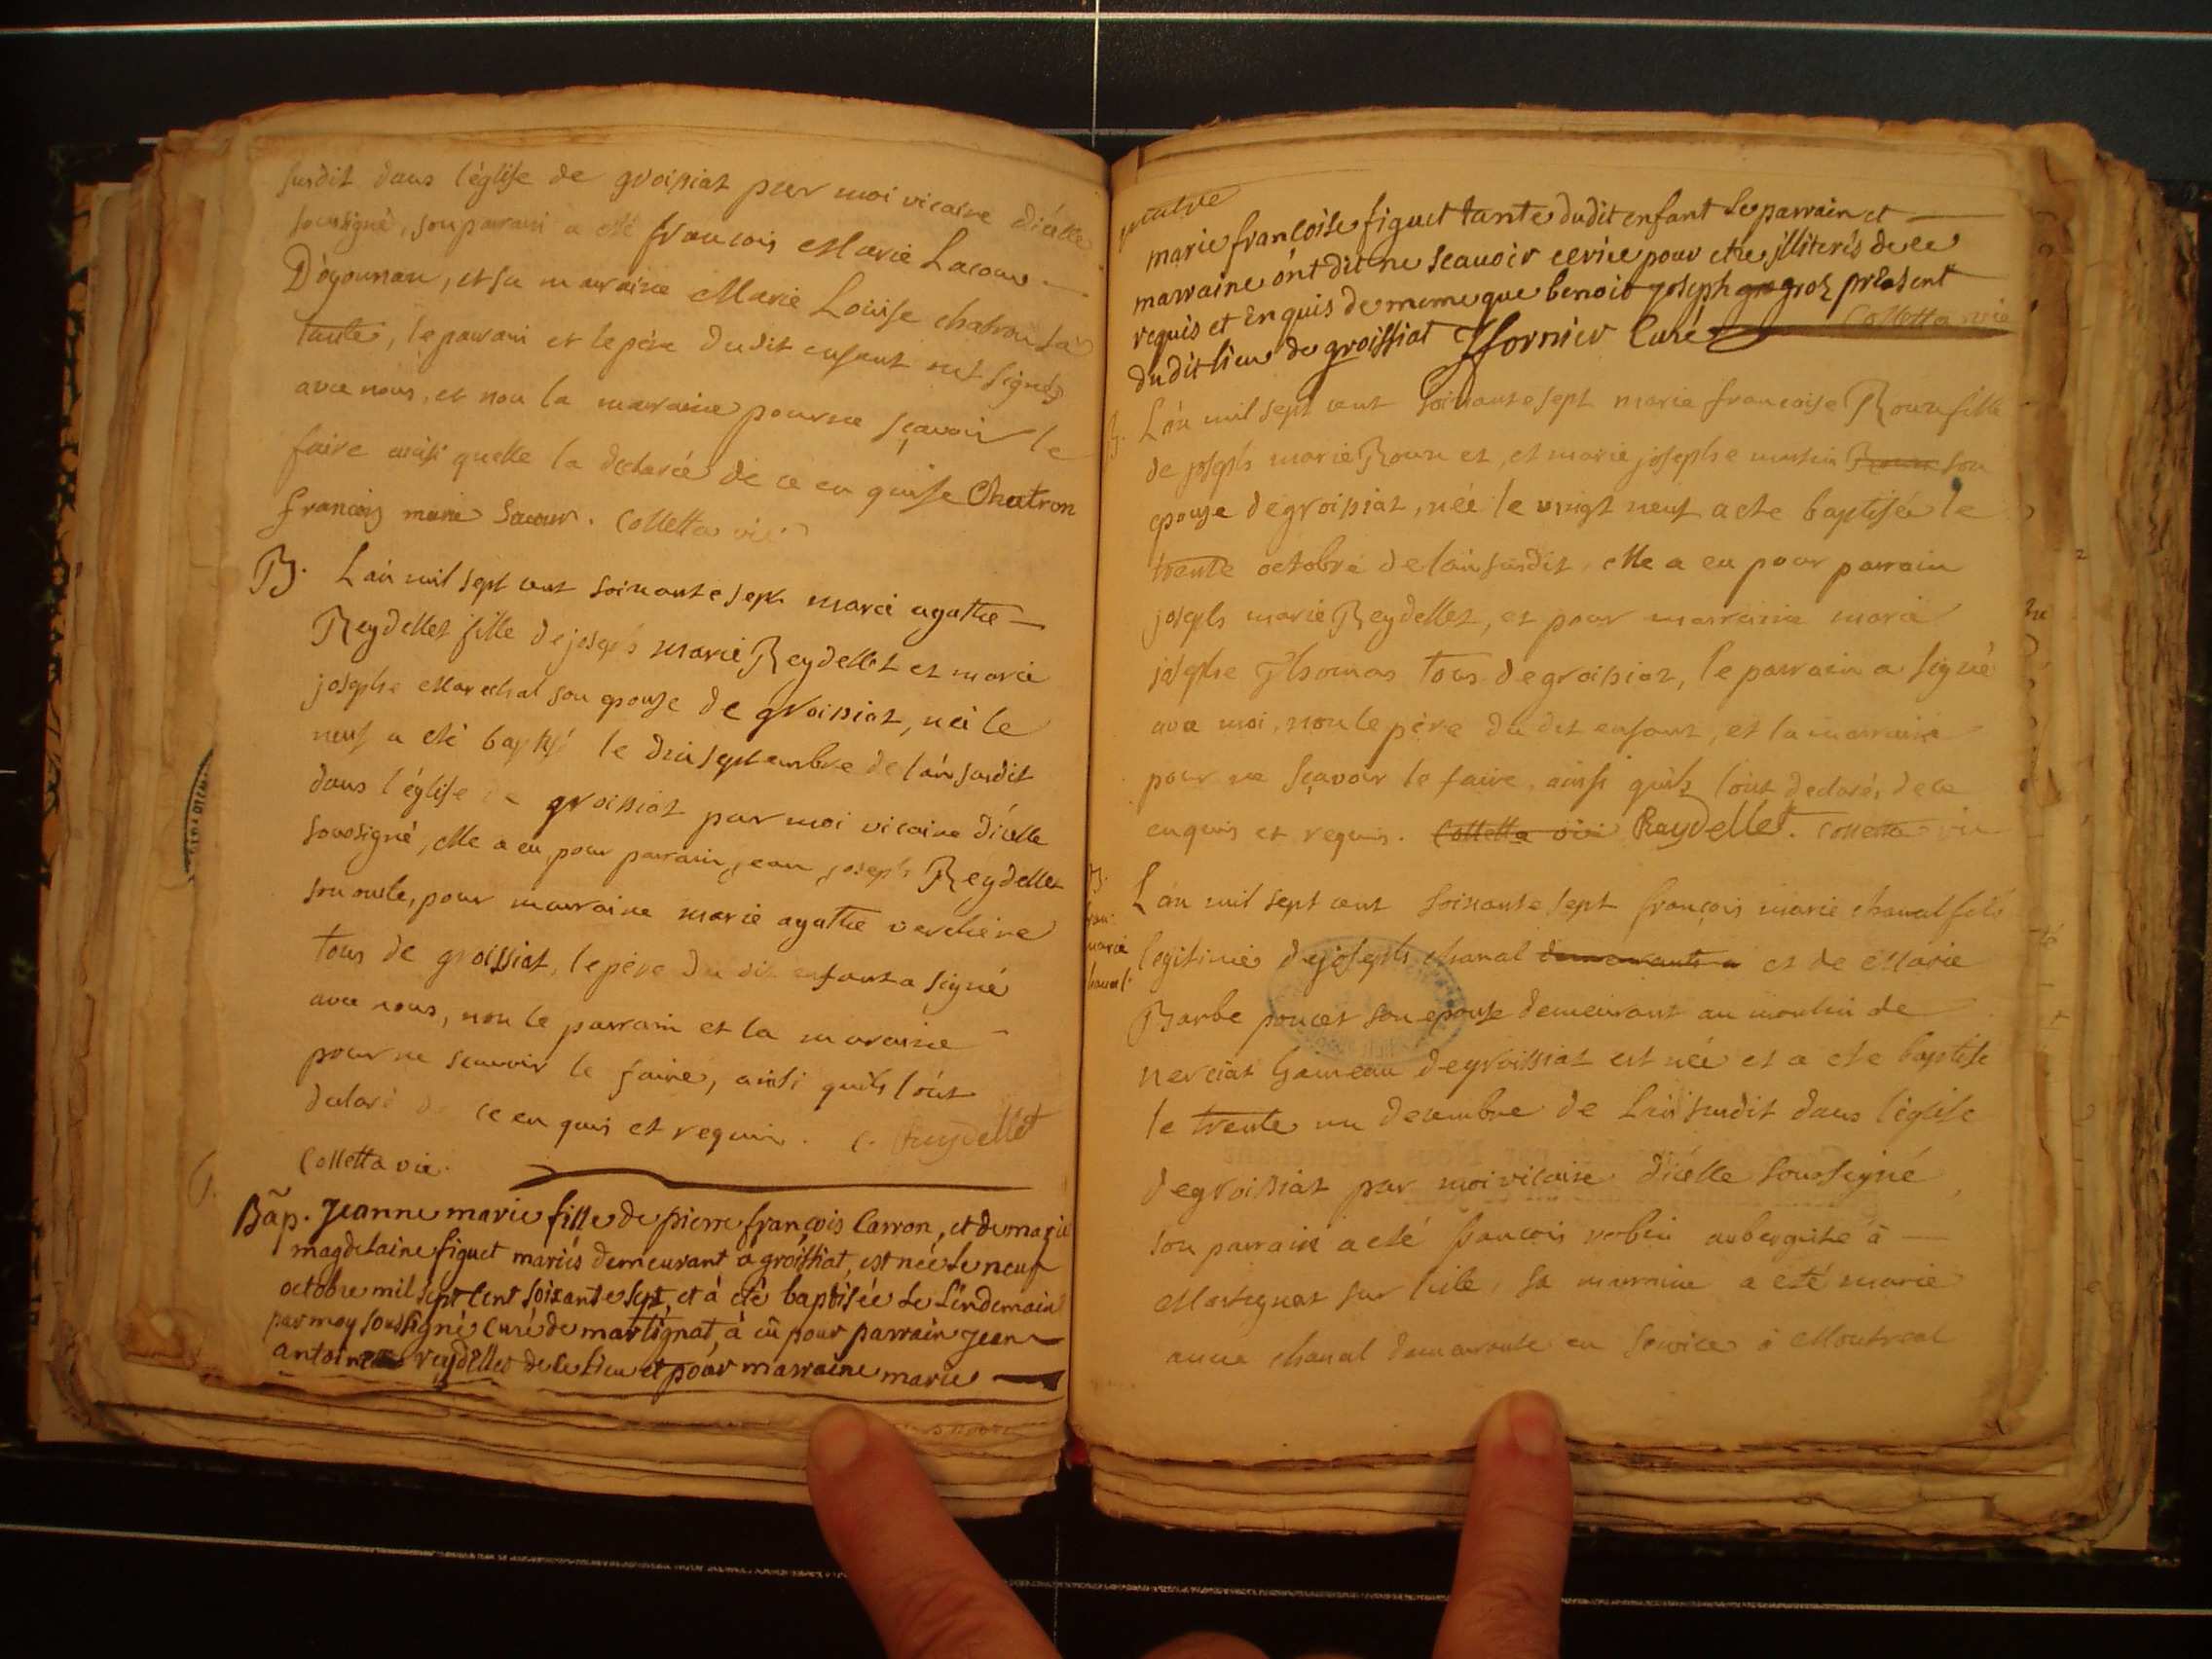 susdit dans l'église de groissiat par moi vicaire d'icelle
soussigné, son parrain a esté francois Marie Lacour
D'oyounan, et sa marraine Marie Louise chatron sa
tante, le parrain et le père dudit enfant ont signés
avec nous, et non la marraine pour ne sçavoir le
faire ainsi quelle la declarée de ce en quise Chatron
francois marie Lacour. Colletta vic
B. L'an mil sept cent soixante sept marie agathe
Reydellet fille de joseph marie Reydellet et marie
josephe Marechal son epouse de groissiat, née le
neuf a eté baptisé le dix septembre de l'an susdit
dans l'église de groissiat par moi vicaire d'icelle
soussigné, elle a eu pour parrain jean joseph Reydellet
son oncle, pour marraine marie agathe verchere
tous de groissiat, le père du dit enfant a signé
avec nous, non le parrain et la maraine
pour ne scavoir le faire, ainsi quils l'ont
declaré de ce en quis et requis. Reydellet
Colletta vic.
Bap. Jeanne marie fille de pierre françois Carron, et de marie
magdelaine figuet mariés demeurant a groissiat, est née le neuf
octobre mil sept cent soixante sept, et à eté baptisée le lendemain
par moy soussigné curé de martignat, à eû pour parrain jean
antoine reydellet de ce lieu et pour marraine marie
marie françoise figuet tante dudit enfant le parrain et
marraine ont dit ne scauoir ecrire pour etre illiterés de ce
requis et enquis de meme que benoit joseph gro groz présent
du dit lieu de groissiat ffornier Curé Colletta vic
B. L'an mil sept cent soixante sept marie francoise Roux fille
de joseph marie Roux et, et marie josephe mussin Roux son
epouse de groissiat, née le vingt neuf a ete baptisée le
trente octobre de l'an susdit, elle a eu pour parrain
joseph marie Reydellet, et pour marraine marie
josephe Thomas tous de groissiat, le parrain a signé
avec moi, non le père du dit enfant, et la marraine
pour ne sçavoir le faire, ainsi quils l'ont declaré, de ce
enquis et requis. Colletta vic Raydellet. Colletta vic
B.
fran:
marie
chanal.
L'an mil sept cent soixante sept françois marie chanal fils
legitime de joseph chanal demeurants a et de Marie
Barbe poncet son epouse demeurant au moulin de
nerciat hameau de groissiat est née et a ete baptisé
le trente un decembre de l'an susdit dans l'église
de groissiat par moi vicaire d'icelle soussigné
son parrain a eté francois aubergiste à
Martignat sur l'isle, sa marraine a eté marie
anne chanal demeurante en service à Montreal